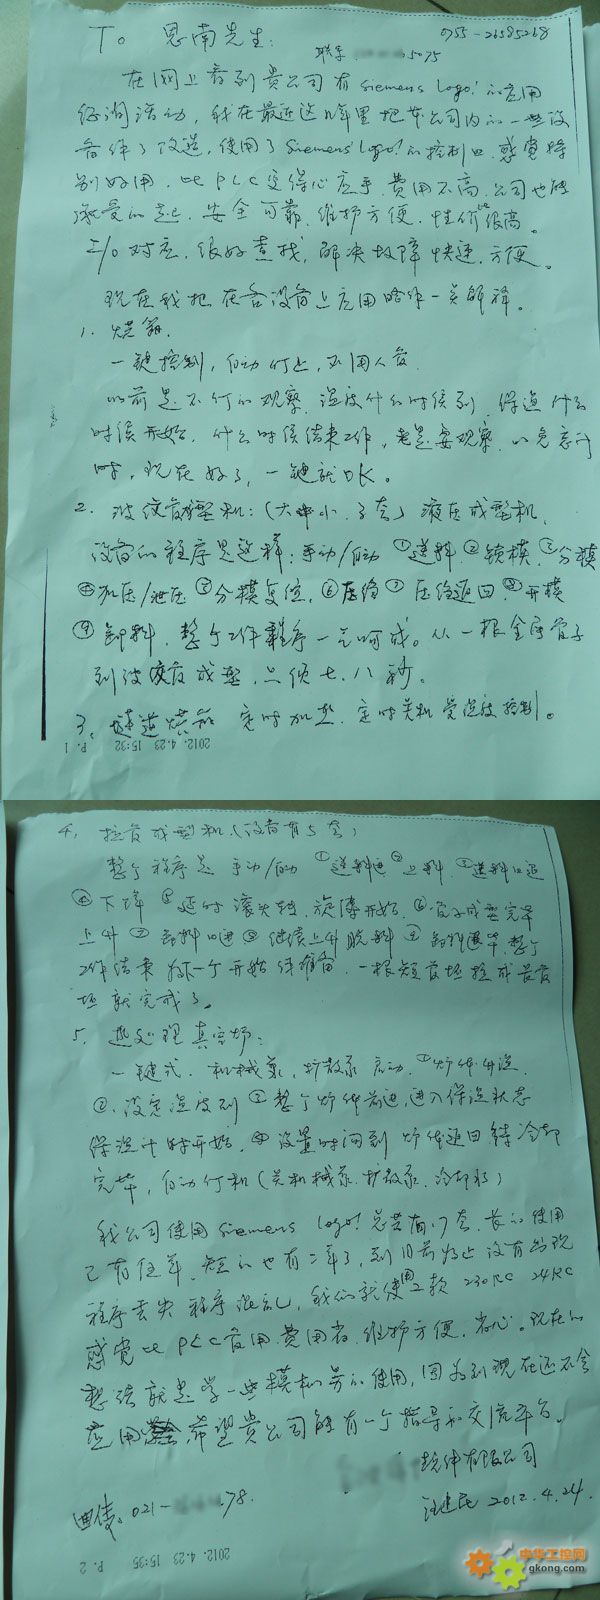 To 思南先生:
联系 5075 0755-26585268
在网上看到贵公司有Siemens Logo!的应用
征询活动,我在最近这几年里把本公司内的一些设
备作了改造,使用了Siemens Logo!的控制口,感觉特
别好用,比PLC更得心应手,费用不高,公司也能
承受的起,安全可靠,维护方便,性价比很高。
I/O对应,很好查找,解决故障快速、方便。
现在我把在各设备上应用略作一点解释。
1、烘箱.
一键控制,自动停止,不用人员
以前是不停的观察,温度什么时候到,保温什么
时候开始,什么时候结束工作,老是要观察,以免忘计
时,现在好了,一键就OK。
2、波纹管成型机:(大中小,3套)液压成型机,
设备的程序是这样:手动/自动 ①送料②锁模,③分模
④加压/泄压 ⑤分模复位,⑥压缩⑦压缩退回,⑧开模
⑨卸料,整个工作程序一气呵成。从一根金属管子
到波纹管成型,只须七、八秒。
3、隧道烘箱 定时加热,定时关机受温度控制。
P. 1 2012. 4.23 15:32
4、拉管成型机(设备有5套)
整个程序是手动/自动 ①送料进②上料,③送料口退
④下降 ⑤延时滚头转,旋薄开始,⑥管子成型完毕
上升⑦卸料口进⑧继续上升脱料⑨卸料退毕,整个
工作结束为下一个开始作准备,一根短管坯拉成长管
坯就完成了。
5、热处理真空炉:
一键式,机械泵,扩散泵启动,①炉体升温
②、设定温度到③整个炉体前进,进入保温状态
保温计时开始,④设置时间到炉体退回待冷却
完毕,自动停机(关机械泵.扩散泵.冷却水)
我公司使用Siemens Logo!总共有17套,长的使用
已有 年,短的也有二年了,到目前为止没有出现
程序丢失 程序混乱,我们就使用二款 230RC 24RC
感觉比PLC好用,费用省,维护方便,省心。现在的
想法就是学一些模拟量的使用,因为到现在还不会
应用,希望贵公司能有一个指导和交流平台。
软件有限公司
电传:021- 78. 汪建民 2012.4.24.
P. 2 2012. 4.23 15:35
中华工控网
gkong.com